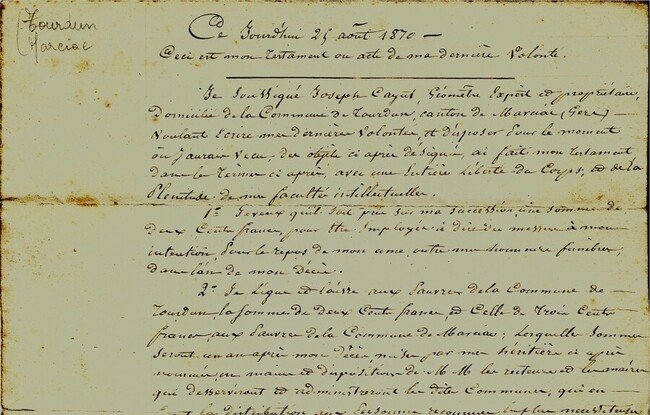 Tourdun
Marciac
Ce Jourd'hui 25 août 1870 —
Ceci est mon Testament ou acte de ma dernière Volonté.
Je Soussigné Joseph Cayut, Géomètre Expert et propriétaire,
domicilié de la Commune de Tourdun, canton de Marciac (Gers) —
Voulant Ecrire mes dernières Volontés, et disposer pour le moment
où J'aurais vécu, des objets ci après désignés, ai fait mon testament
dans les termes ci après, avec une Entière Liberté du Corps, et de la
Plénitude de mes facultés intellectuelles.
1° Je veux qu'il soit pris sur ma succession, une somme de
deux Cents francs, pour être Employée à dire des messes à mon
intention, pour le repos de mon ame, outre mes honneurs funèbres,
dans l'an de mon Décès.
2° Je Lègue et laisse aux Pauvres de la Commune de
Tourdun, la somme de deux Cents francs, et Celle de Trois Cents
francs, aux Pauvres de la Commune de Marciac; Lesquelles Sommes
seront, un an après mon Décès, mises par mes héritiers ci après
nommés, en mains et dispositions de M M les recteurs et les maires
qui desserviront et administreront les dites Communes, qui en
feront la distribution aux personnes reconnues les plus nécessiteuses